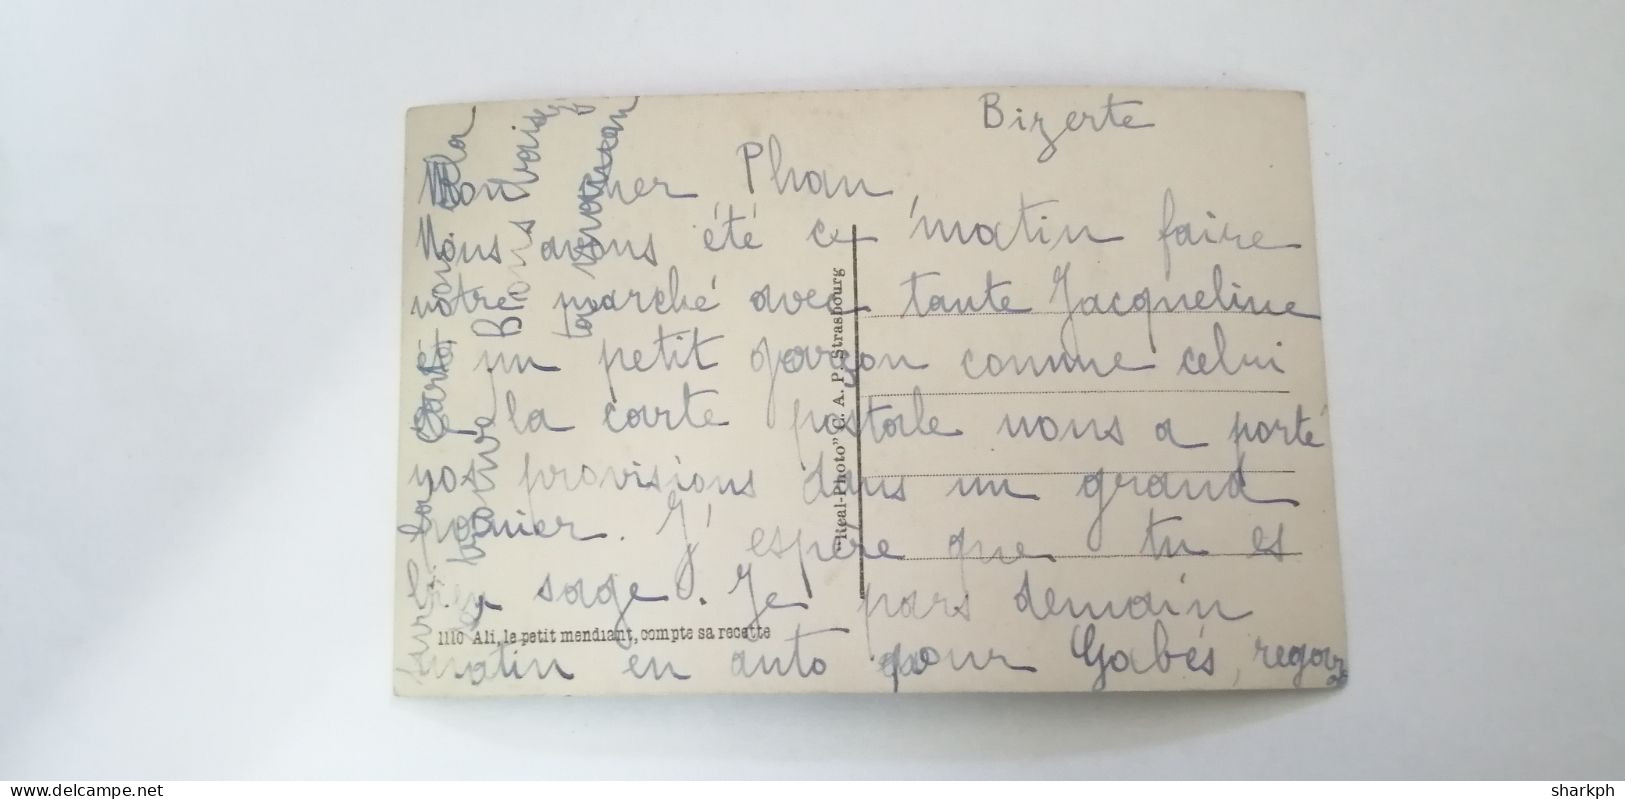 Bizerte
Mon cher Phan,
Nous avons été ce matin faire
notre marché avec tante Jacqueline
et un petit garçon comme celui
de la carte postale nous a porté
nos provisions dans un grand
panier. J'espère que tu es
bien sage. Je pars demain
matin en auto pour Gabès, regarde
sur la carte
"Real-Photo" C. A. P. Strasbourg
1110 Ali, le petit mendiant, compte sa recette
delcampe.net
sharkph